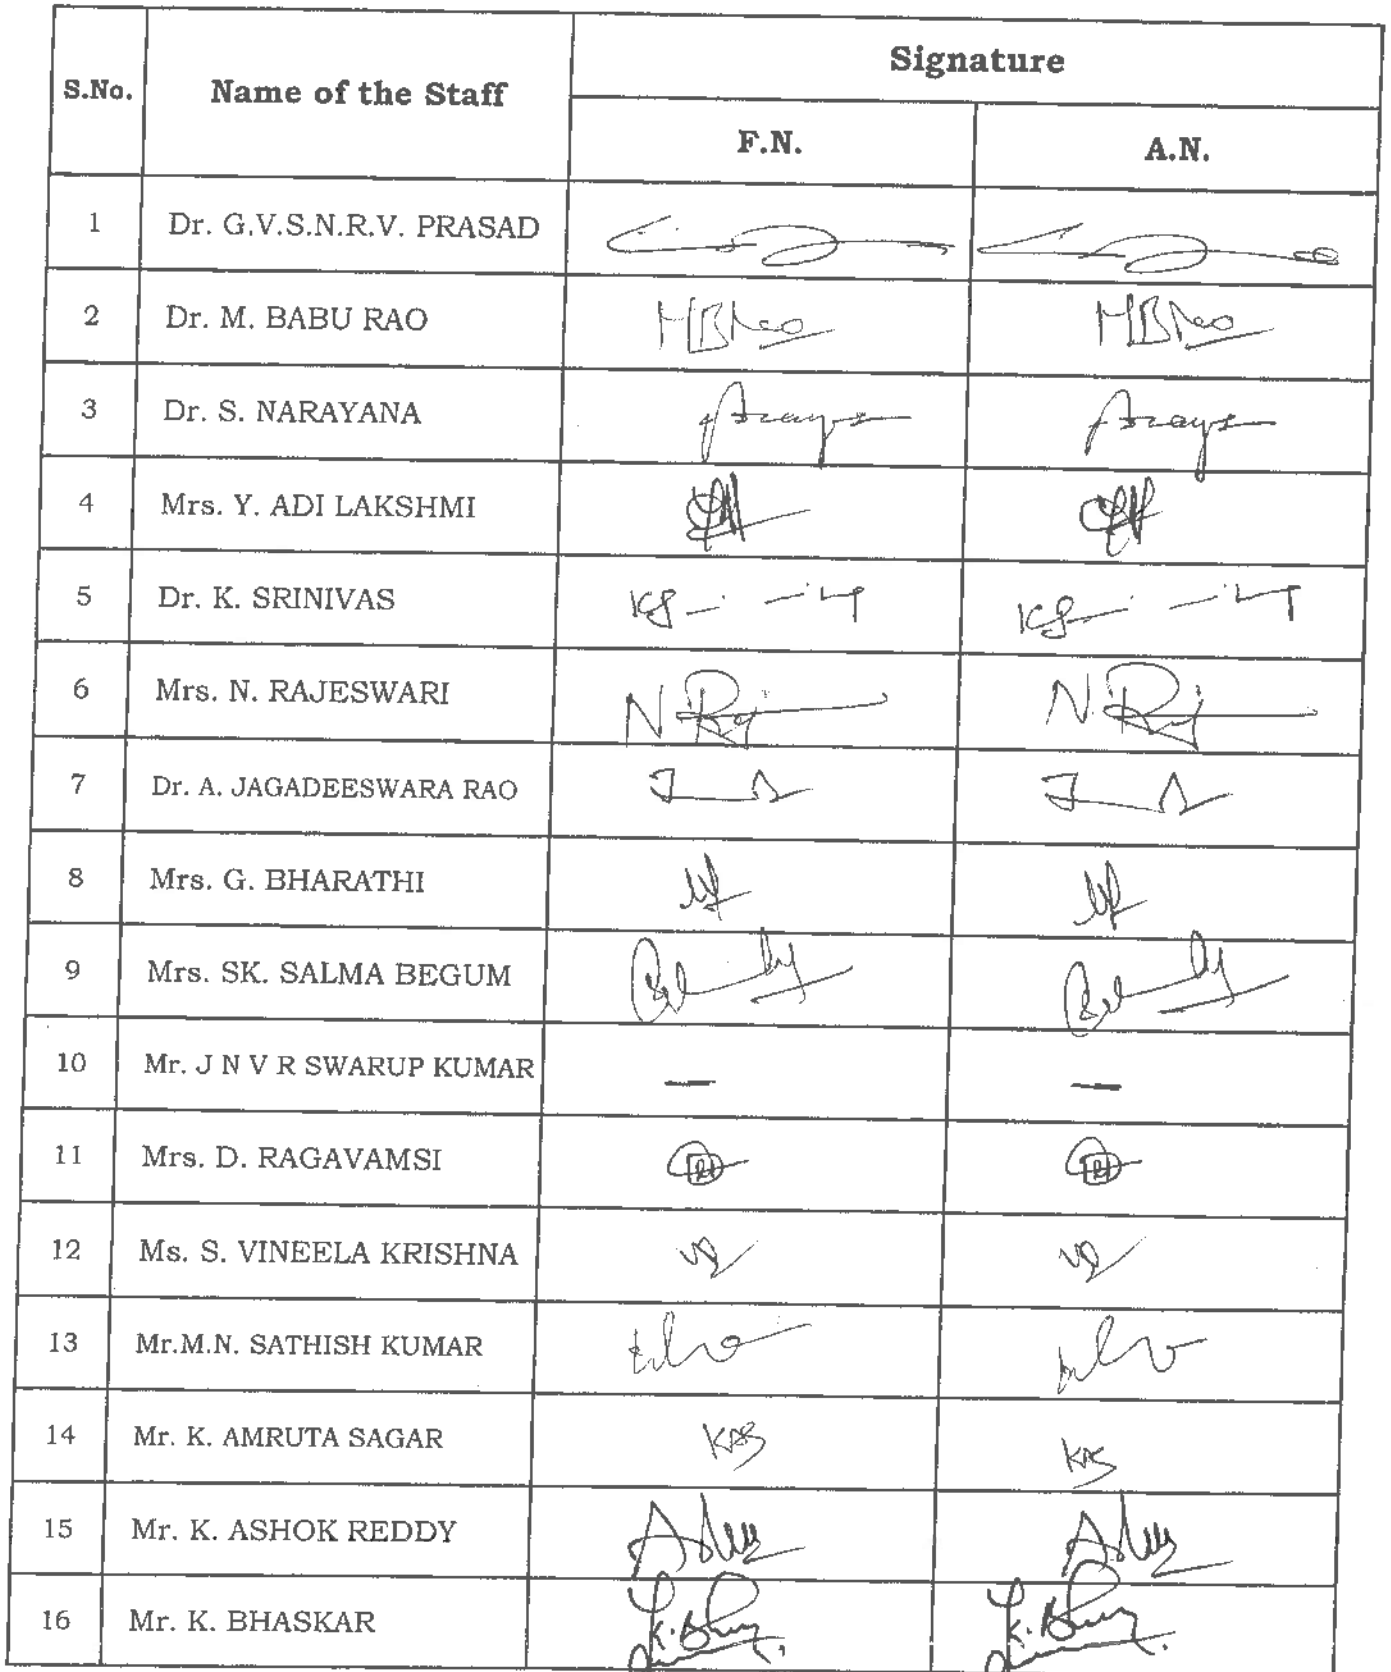 S.No. Name of the Staff Signature
F.N. A.N.
1 Dr. G.V.S.N.R.V. PRASAD
2 Dr. M. BABU RAO MBRao MBRao
3 Dr. S. NARAYANA
4 Mrs. Y. ADI LAKSHMI
5 Dr. K. SRINIVAS
6 Mrs. N. RAJESWARI N.Raj N.Raj
7 Dr. A. JAGADEESWARA RAO
8 Mrs. G. BHARATHI
9 Mrs. SK. SALMA BEGUM
10 Mr. J N V R SWARUP KUMAR — —
11 Mrs. D. RAGAVAMSI
12 Ms. S. VINEELA KRISHNA
13 Mr.M.N. SATHISH KUMAR
14 Mr. K. AMRUTA SAGAR KAS KAS
15 Mr. K. ASHOK REDDY
16 Mr. K. BHASKAR